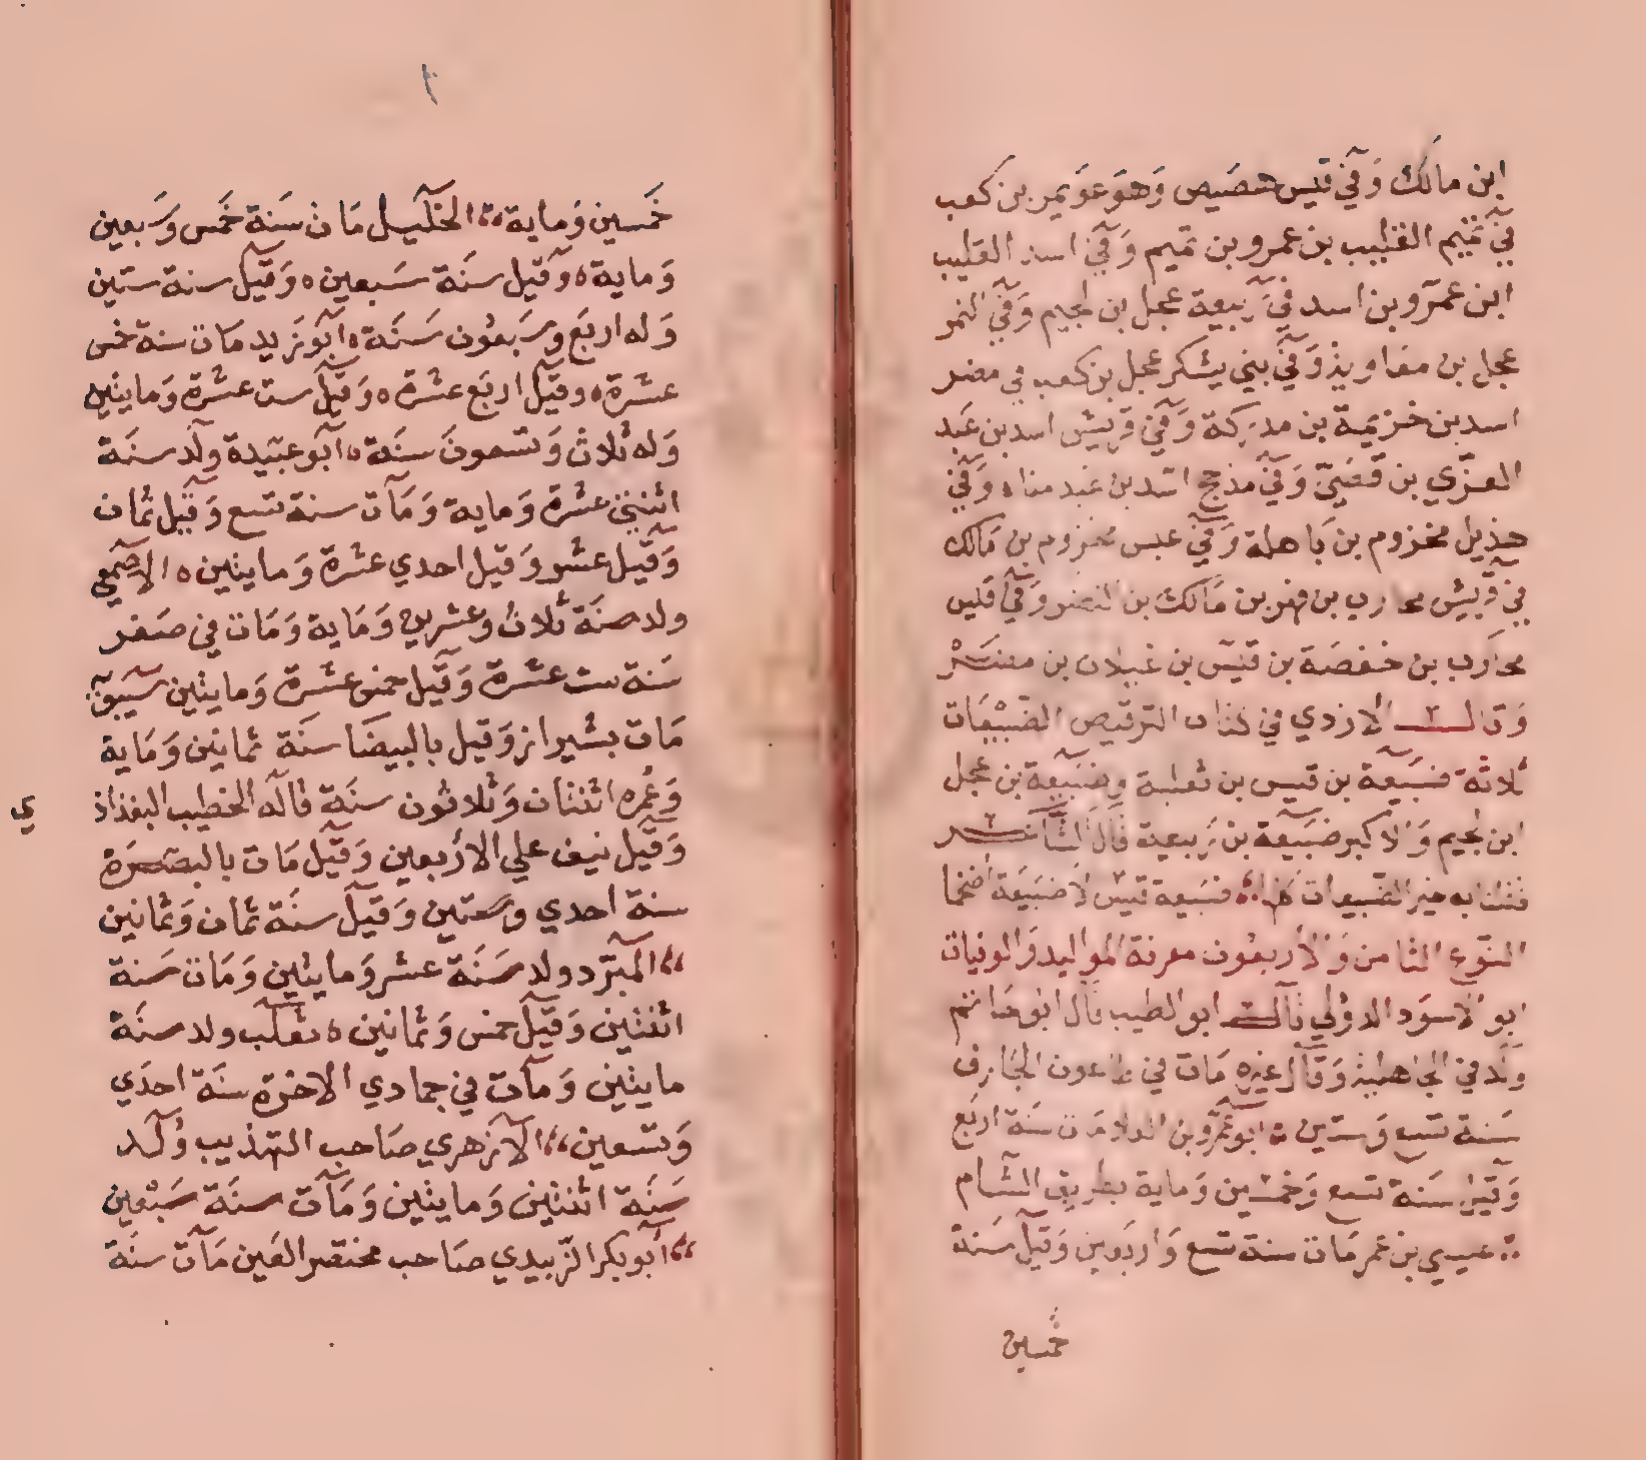 ابن مالك وفي قيس هصيص وهو عويمر بن كعب
في تميم القليب بن عمرو بن تميم وفي اسد القليب
ابن عمرو بن اسد في ربيعة عجل بن لجيم وفي النمر
عجل بن معاوية وفي بني يشكر عجل بن كعب في مضر
اسد بن خزيمة بن مدركة وفي قريش اسد بن عبد
العزي بن قصي وفي مذحج اسد بن عبد مناه وفي
هذيل مخزوم بن باهلة وفي عبس مخزوم بن مالك
في قريش محارب بن فهر بن مالك بن النضر وفي قيس
محارب بن خفصة بن قيس بن غيلان بن مضر
وقال الازدي في كتاب الترقيص الضبيعات
ثلاثة ضبيعة بن قيس بن ثعلبة وضبيعة بن عجل
ابن لجيم والاكبر ضبيعة بن ربيعة قال الشاعر
قتلنا به خير الضبيعات كلها ضبيعة قيس لا ضبيعة اضخما
النوع الثامن والاربعون معرفة المواليد والوفيات
ابو الاسود الدؤلي قال ابو الطيب قال ابو حاتم
ولد في الجاهلية وقال غيره مات في طاعون الجارف
سنة تسع وستين ابو عمرو بن العلا مات سنة اربع
وقيل سنة تسع وخمسين وماية بطريق الشام
عيسي بن عمر مات سنة تسع واربعين وقيل سنة
خمسين
خمسين وماية الخليل مات سنة خمس وسبعين
وماية وقيل سنة سبعين وقيل سنة ستين
وله اربع وسبعون سنة ابو زيد مات سنة خمس
عشرة وقيل اربع عشرة وقيل ست عشرة ومايتين
وله ثلاث وتسعون سنة ابو عبيدة ولد سنة
اثنتي عشرة وماية ومات سنة تسع وقيل ثمان
وقيل عشر وقيل احدي عشرة ومايتين الاصمعي
ولد سنة ثلاث وعشرين وماية ومات في صفر
سنة ست عشرة وقيل خمس عشرة ومايتين سيبويه
مات بشيراز وقيل بالبيضا سنة ثمانين وماية
وعمره اثنتان وثلاثون سنة قاله الخطيب البغداذ
ي
وقيل نيف علي الاربعين وقيل مات بالبصرة
سنة احدي وستين وقيل سنة ثمان وثمانين
المبرد ولد سنة عشر ومايتين ومات سنة
اثنتين وقيل خمس وثمانين ثعلب ولد سنة
مايتين ومات في جمادي الاخرة سنة احدي
وتسعين الازهري صاحب التهذيب ولد
سنة اثنتين ومايتين ومات سنة سبعين
ابو بكر الزبيدي صاحب مختصر العين مات سنة